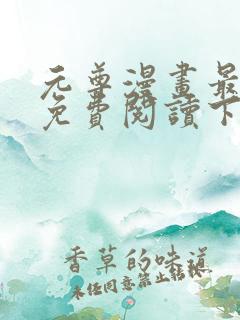 元尊漫畫最
免費閱讀下
香草的味道
未经同意禁止转载